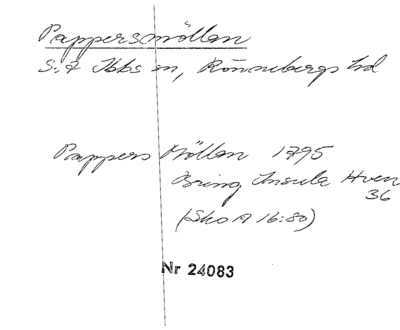 Pappersmöllan
S:t Ibbs sn, Rönnebergs hd
Pappers Möllan 1795
Bring, Insula Hven
36
(Sko A 16:80)
Nr 24083